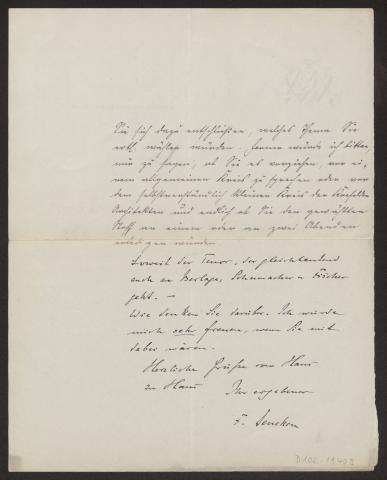 Sie sich dazu entschließen, welches Thema Sie
evtl. wählen würden. Ferner würde ich bitten,
mir zu sagen, ob Sie es vorziehen, vor ei-
nem allgemeinen Kreis zu sprechen oder vor
dem selbstverständlich kleinen Kreis der Krefelder
Architekten und endlich ob Sie den gewählten
Stoff an einem oder an zwei Abenden
erledigen würden.
Soweit der Tenor, der gleichlautend
auch an Berlage, Schumacher u. Fischer
geht. –
Wie denken Sie darüber. Ich würde
mich sehr freuen, wenn Sie mit
dabei wären.
Herzliche Grüße von Haus
zu Haus Ihr ergebener
F.
D 102-1940 2